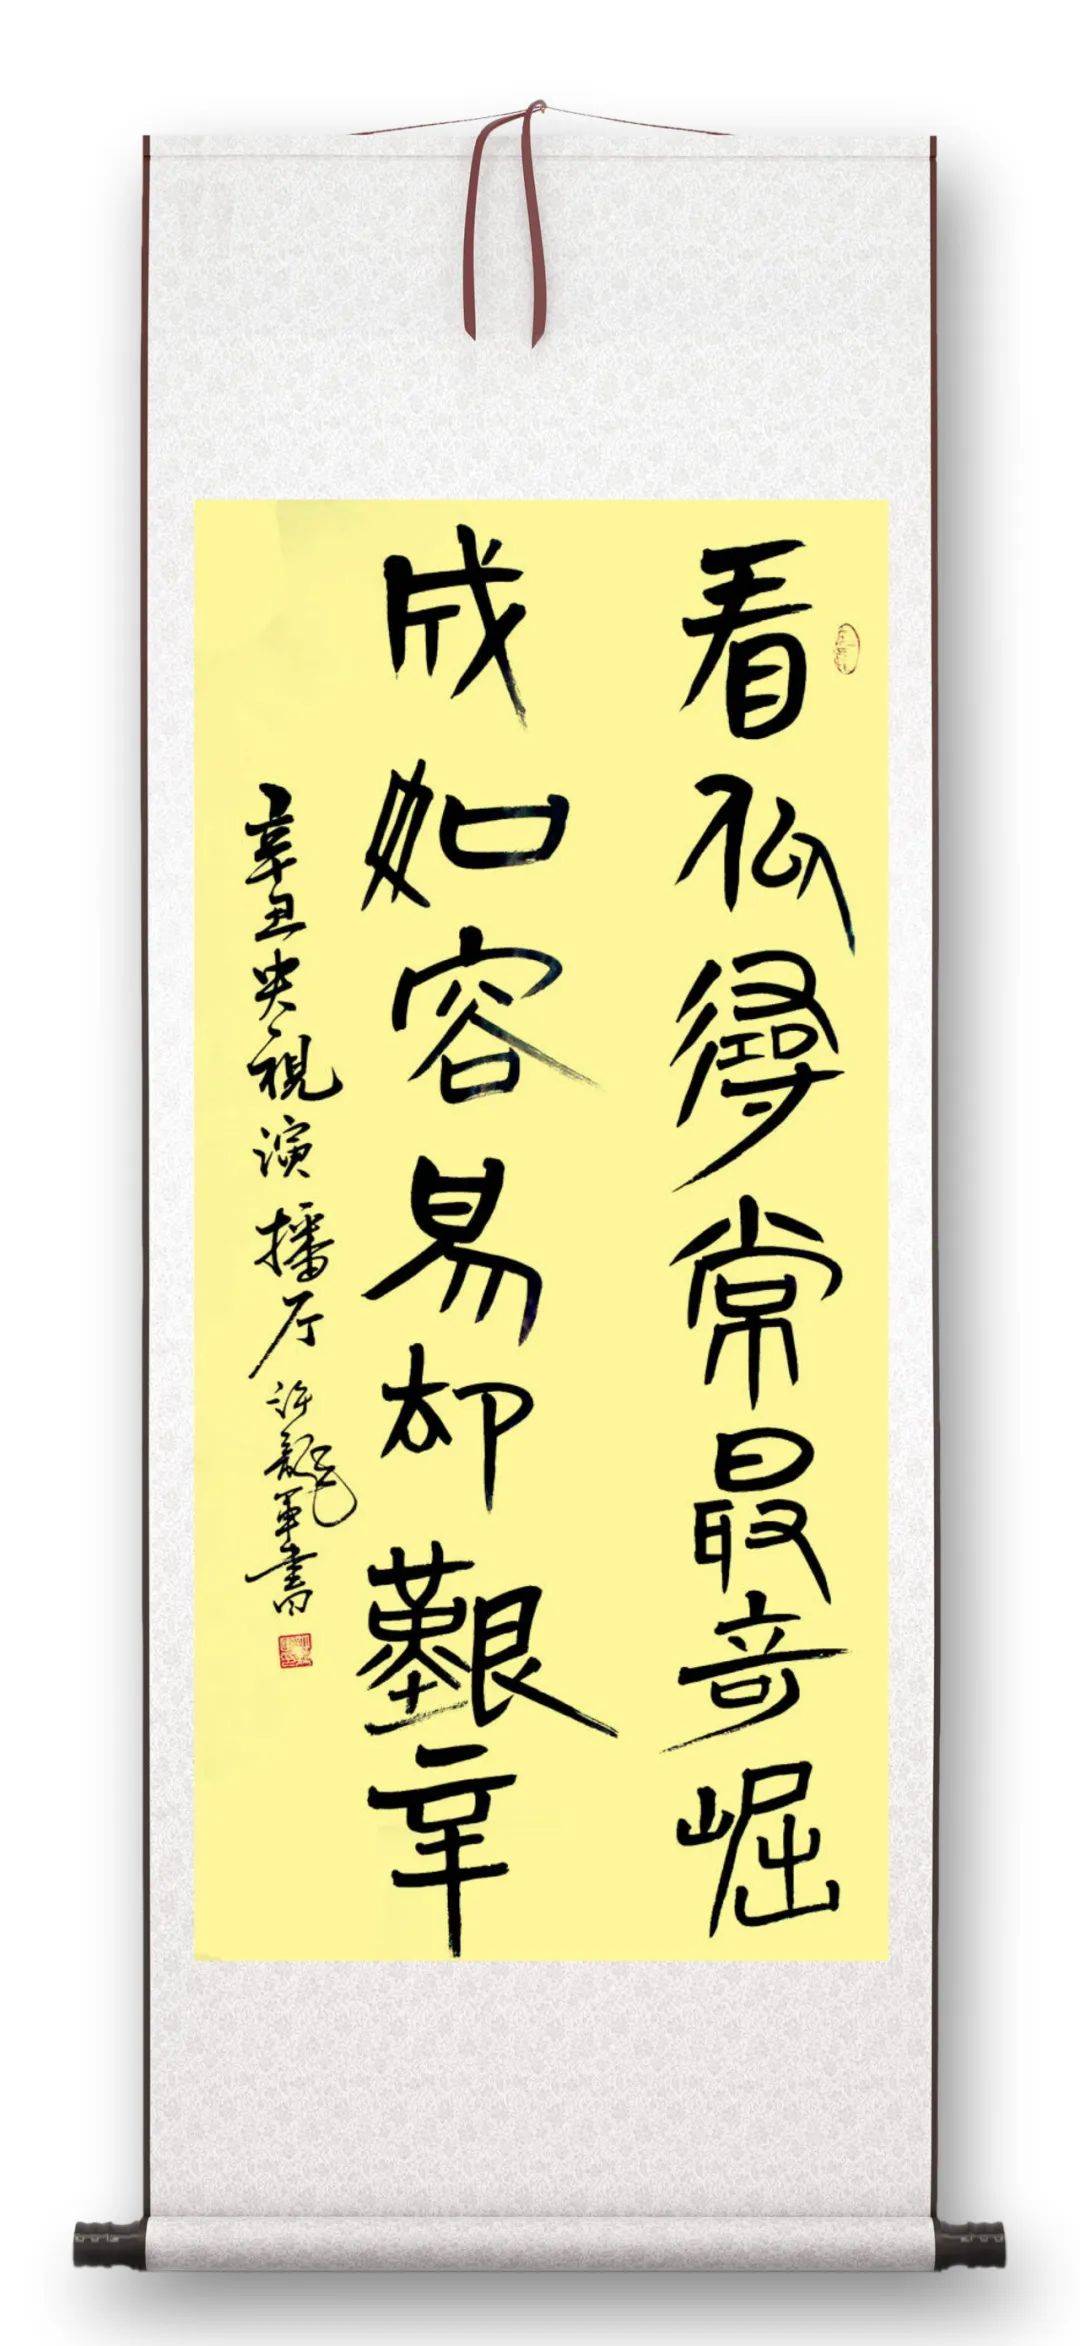 看似尋常最奇崛
成如容易却艱辛
辛丑央視演播厅許龍軍書